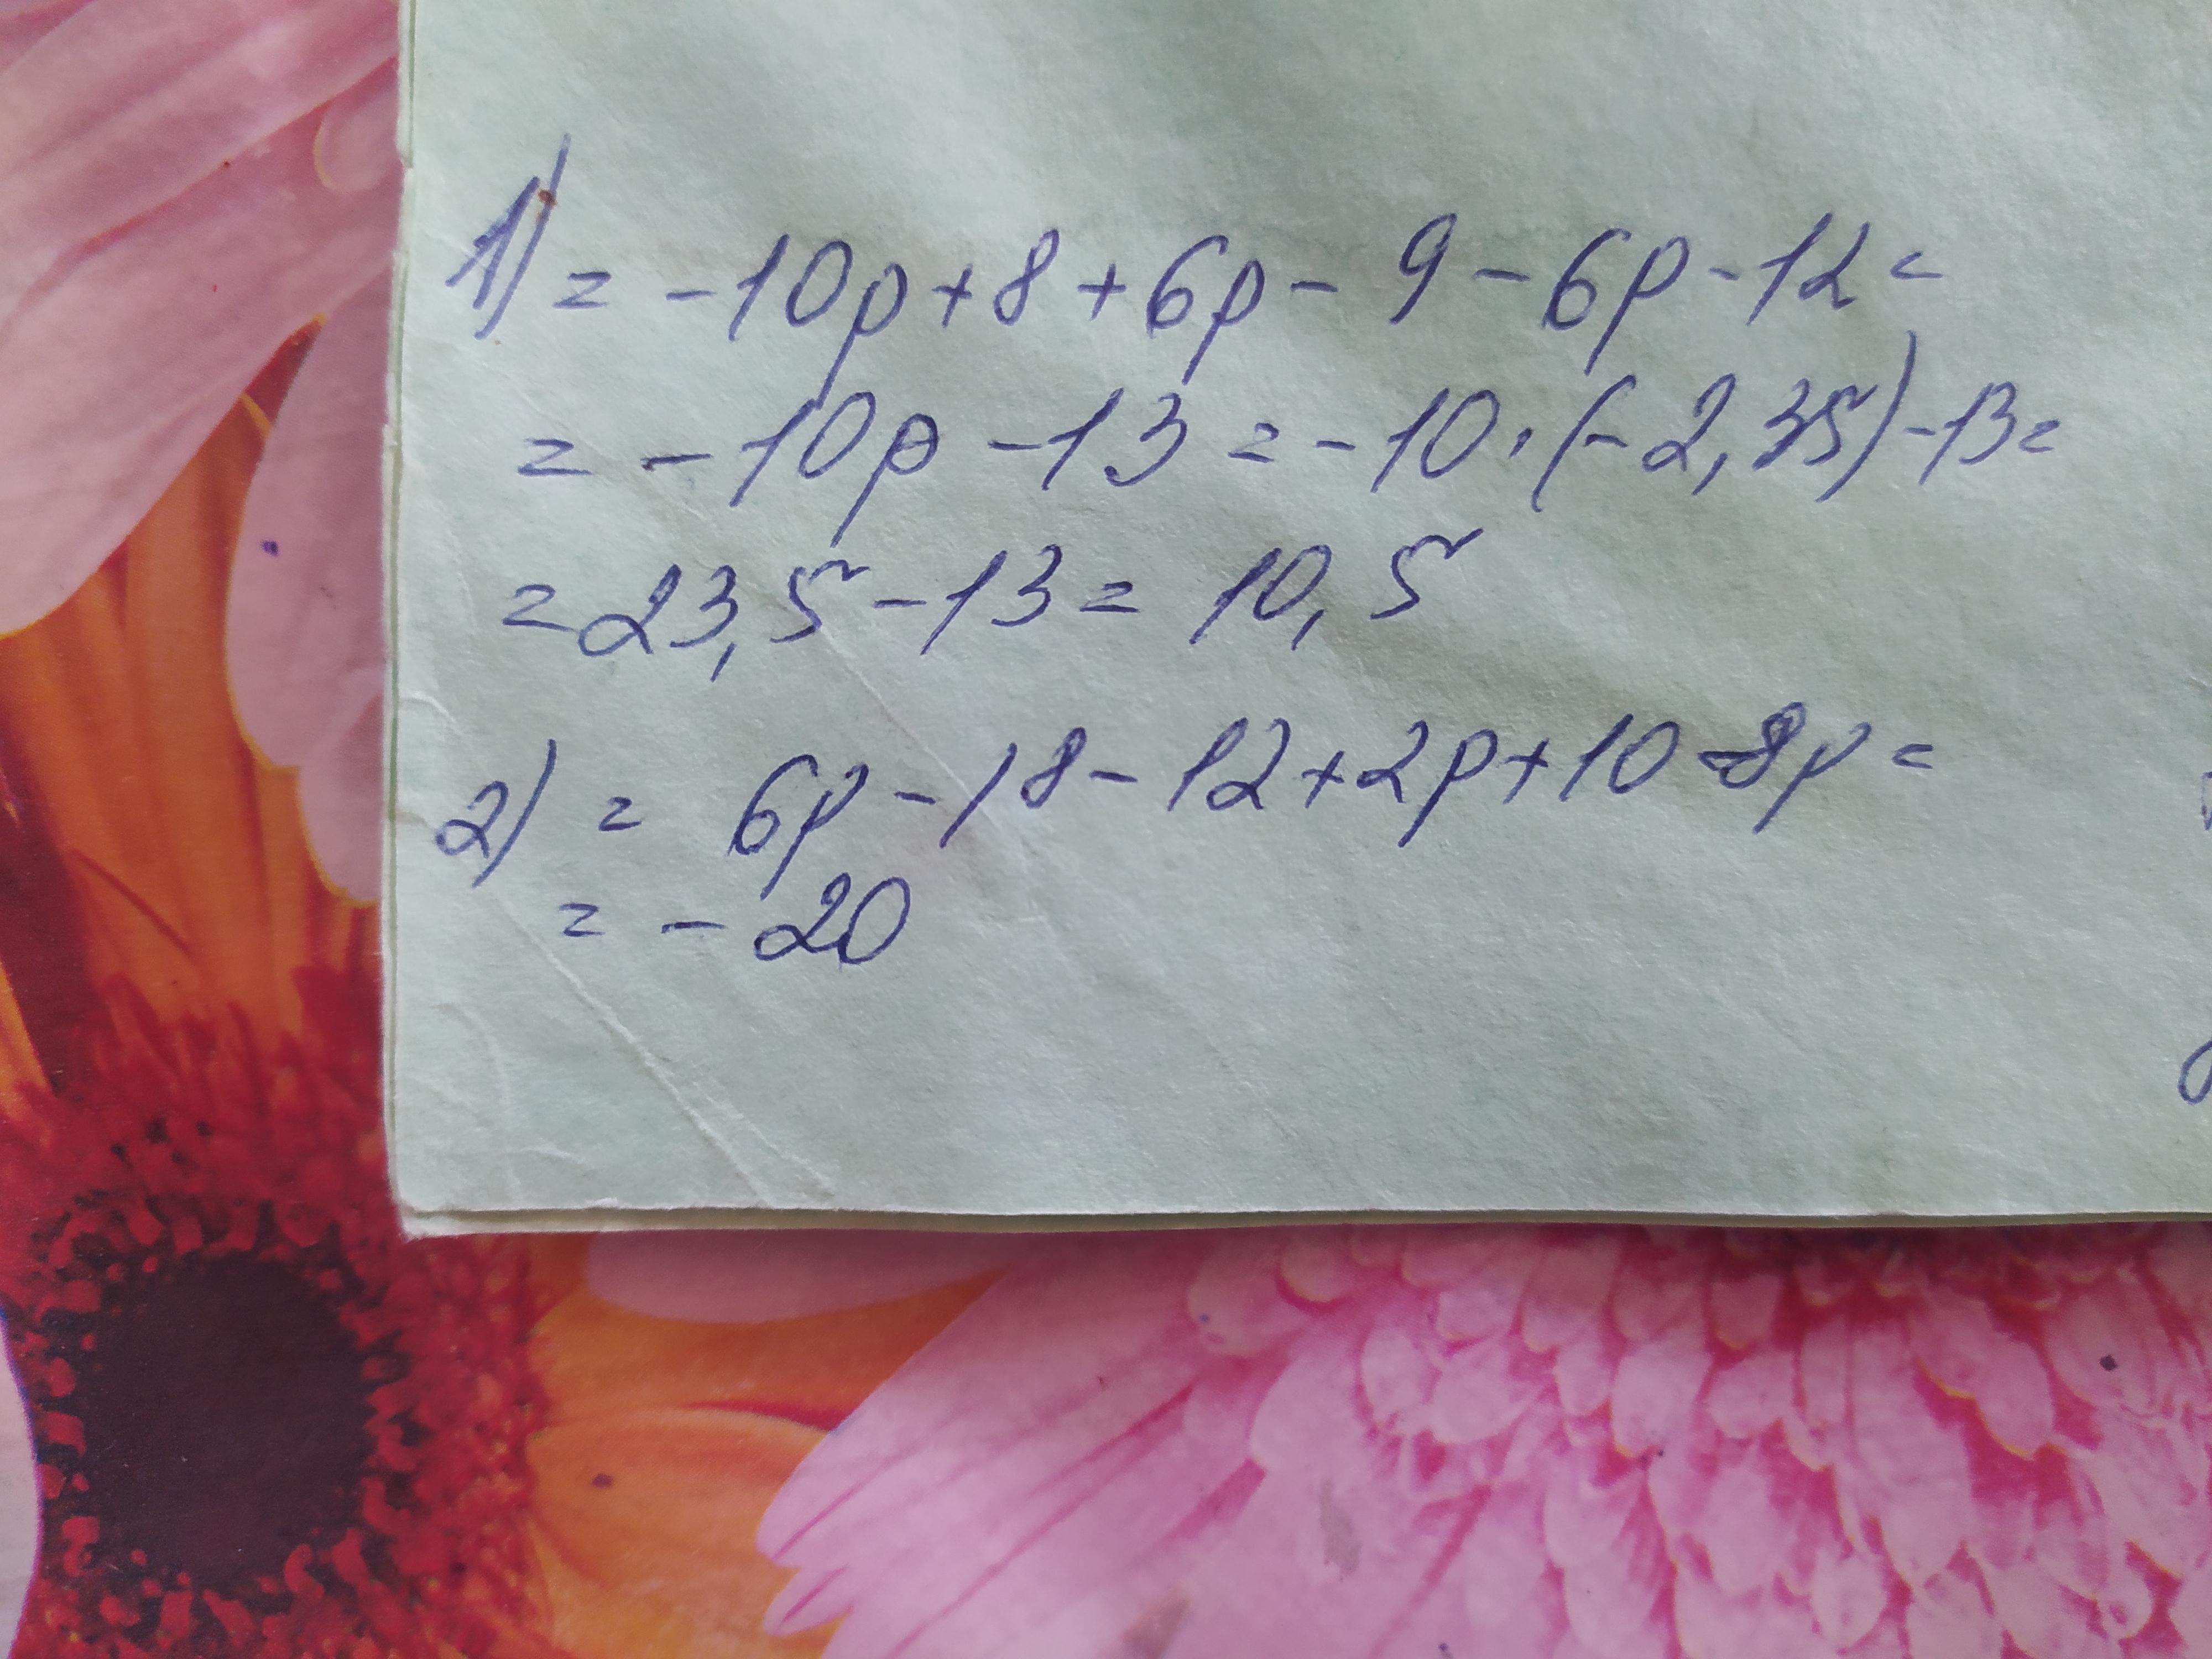 1) = -10p+8+6p-9-6p-12=
= -10p-13=-10·(-2,35)-13=
=23,5-13=10,5
2) = 6p-18-12+2p+10-8p=
= -20